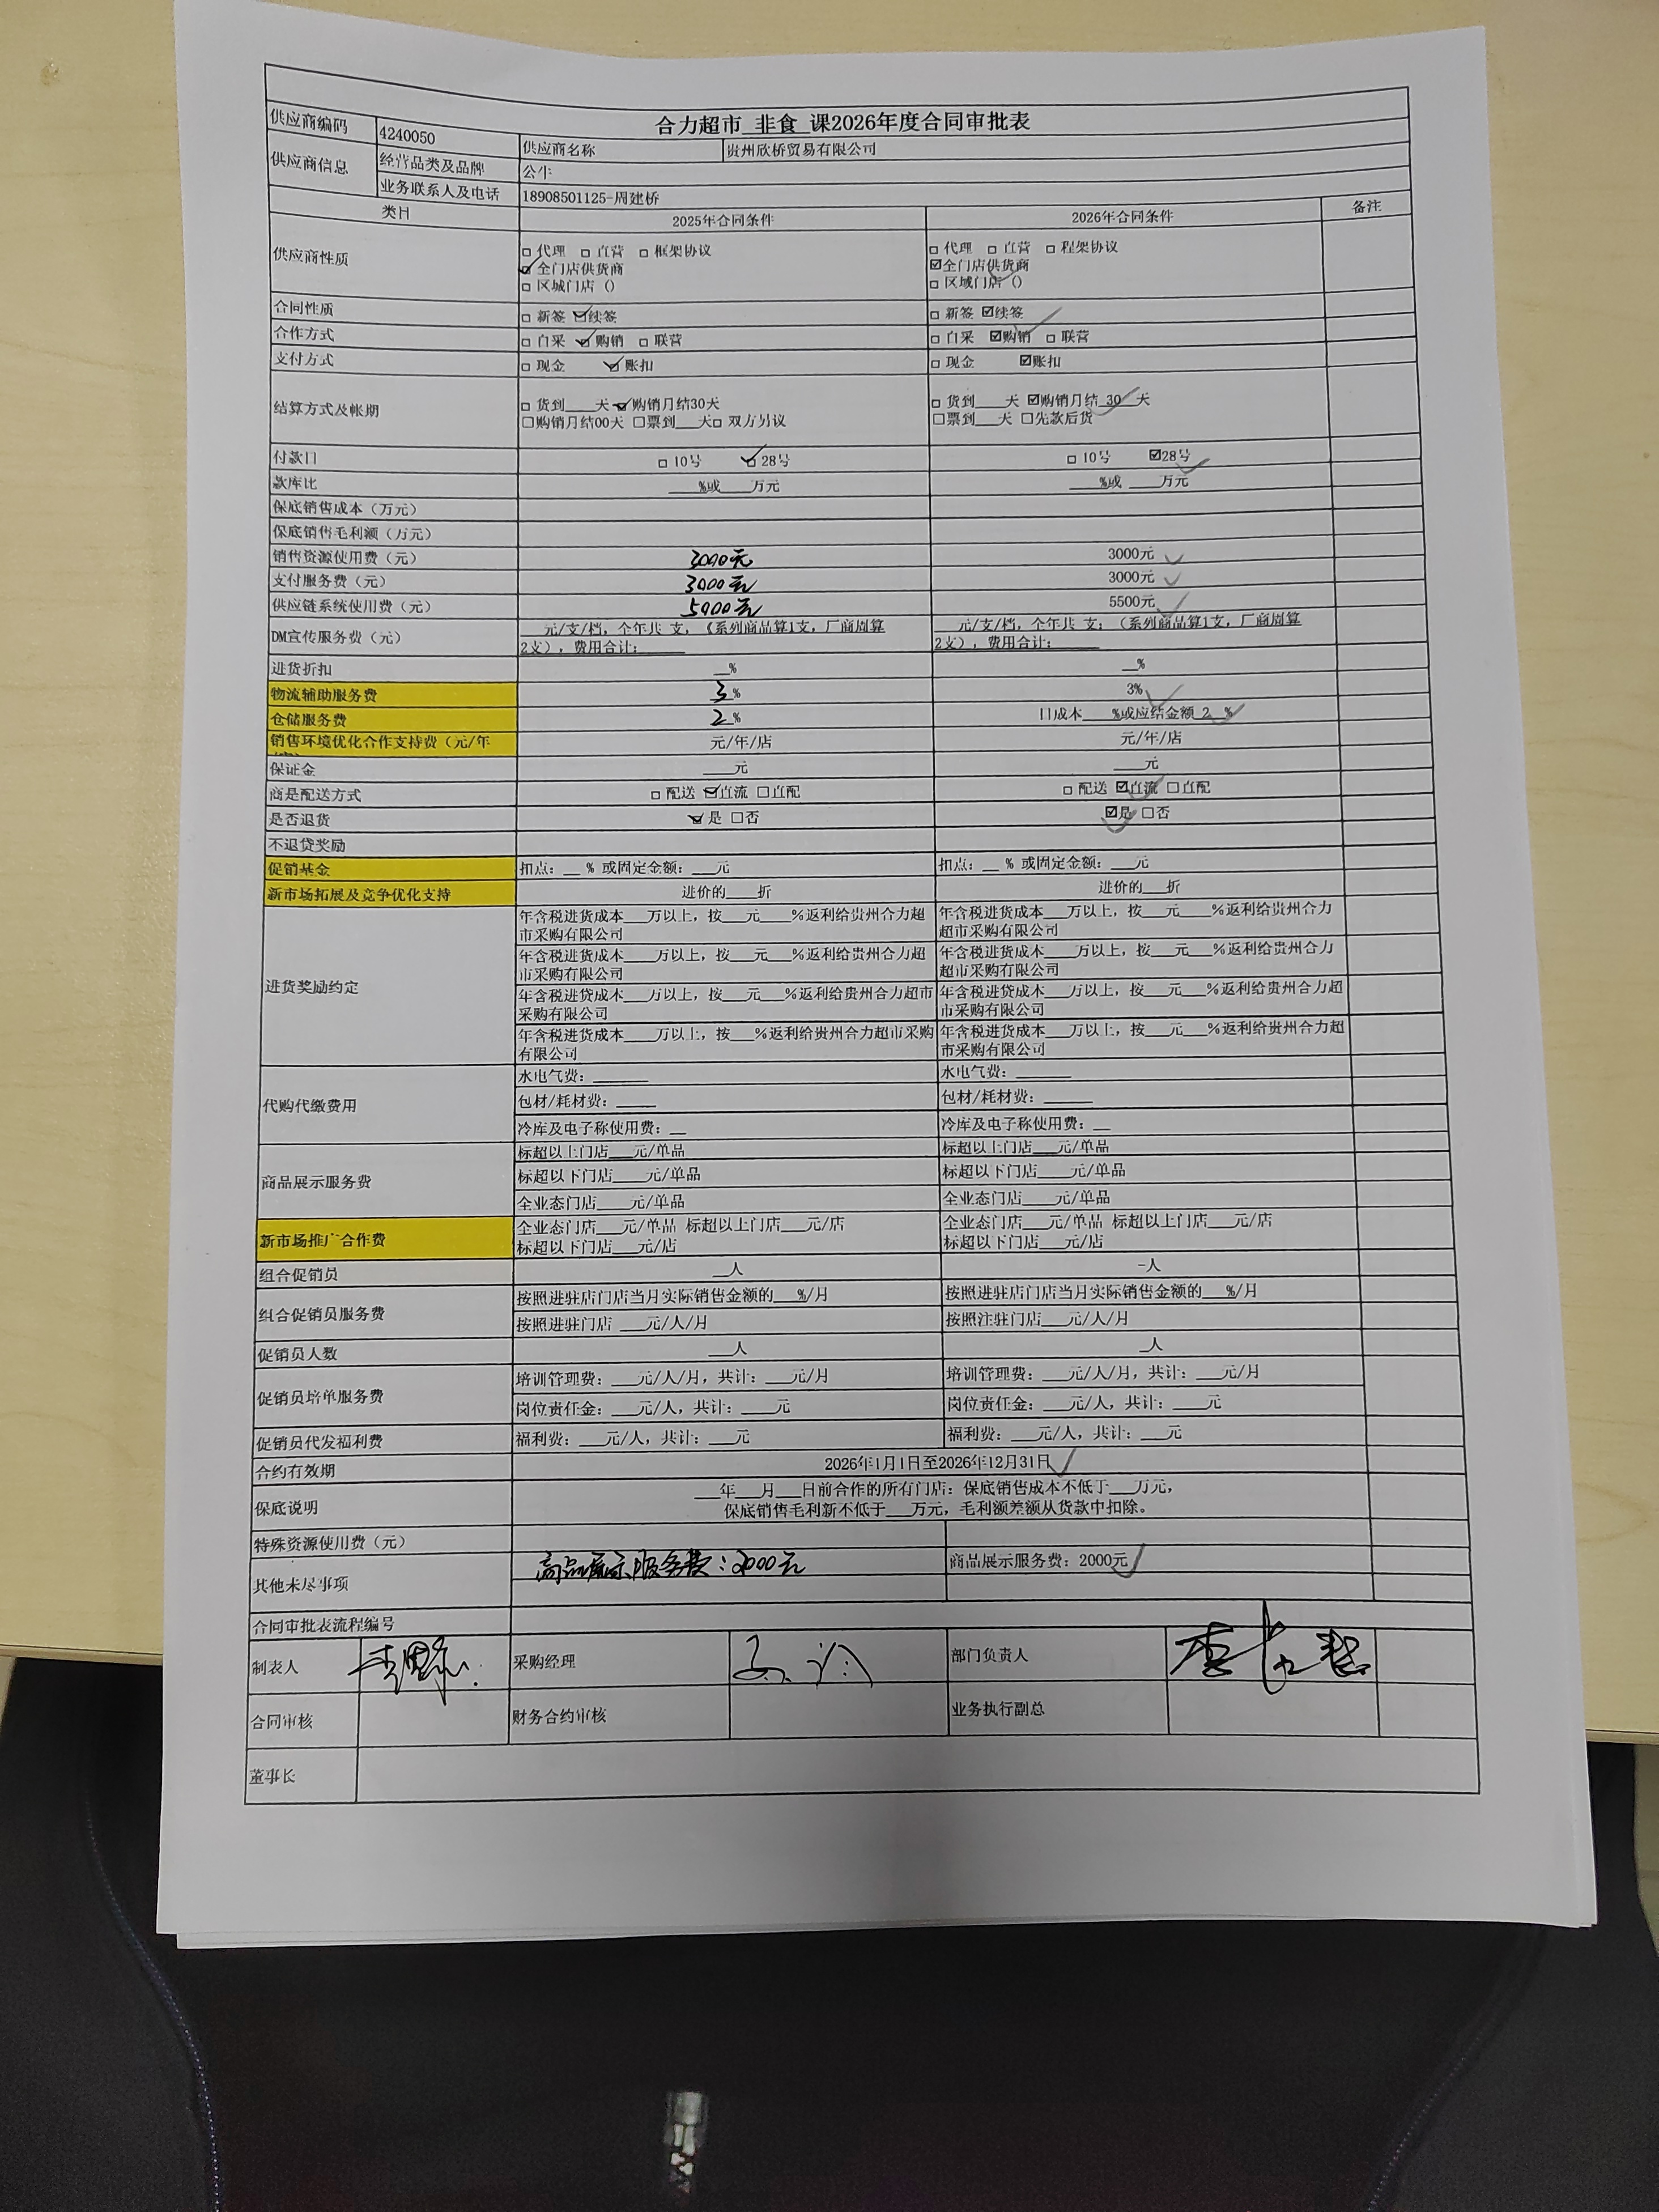 合力超市 非食 课2026年度合同审批表
供应商编码 4240050 供应商名称 贵州欣桥贸易有限公司
供应商信息 经营品类及品牌 公牛
业务联系人及电话 18908501125-周建桥
类目 2025年合同条件 2026年合同条件 备注
供应商性质
□ 代理 □ 直营 □ 框架协议 □ 代理 □ 直营 □ 程架协议
☑ 全门店供货商 ☑全门店供货商
□ 区城门店 () □ 区域门店 ()
合同性质 □ 新签 ☑续签 □ 新签 ☑续签
合作方式 □ 自采 ☑购销 □ 联营 □ 自采 ☑购销 □ 联营
支付方式 □ 现金 ☑账扣 □ 现金 ☑账扣
结算方式及帐期
□ 货到____天 ☑购销月结30天 □ 货到____天 ☑购销月结_30__天
□购销月结00天 □票到___天□ 双方另议 □票到___天 □先款后货
付款日 □ 10号 ☑28号 □ 10号 ☑28号
款库比 ____%或____万元 ____%或 ____万元
保底销售成本（万元）
保底销售毛利额（万元）
销售资源使用费（元） 3000元 3000元
支付服务费（元） 3000元 3000元
供应链系统使用费（元） 5000元 5500元
DM宣传服务费（元）
___元/支/档，全年共 支，（系列商品算1支，厂商周算 ___元/支/档，全年共 支；（系列商品算1支，厂商周算
2支），费用合计：______ 2支），费用合计：______
进货折扣 __% __%
物流辅助服务费 3% 3%
仓储服务费 2% 日成本____%或应结金额_2__%
销售环境优化合作支持费（元/年 元/年/店 元/年/店
保证金 ____元 ____元
商是配送方式 □ 配送 ☑直流 □直配 □ 配送 ☑直流 □直配
是否退货 ☑是 □否 ☑是 □否
不退货奖励
促销基金 扣点：__ % 或固定金额：___元 扣点：__ % 或固定金额：___元
新市场拓展及竞争优化支持 进价的___折 进价的___折
进货奖励约定
年含税进货成本___万以上，按___元____%返利给贵州合力超 年含税进货成本___万以上，按___元____%返利给贵州合力
市采购有限公司 超市采购有限公司
年含税进货成本____万以上，按___元___%返利给贵州合力超 年含税进货成本____万以上，按___元___%返利给贵州合力
市采购有限公司 超市采购有限公司
年含税进货成本___万以上，按___元___%返利给贵州合力超市 年含税进货成本___万以上，按___元___%返利给贵州合力超
采购有限公司 市采购有限公司
年含税进货成本____万以上，按___%返利给贵州合力超市采购 年含税进货成本____万以上，按___元___%返利给贵州合力超
有限公司 市采购有限公司
代购代缴费用
水电气费：_______ 水电气费：_______
包材/耗材费：_____ 包材/耗材费：______
冷库及电子称使用费：__ 冷库及电子称使用费：__
商品展示服务费
标超以上门店___元/单品 标超以上门店___元/单品
标超以下门店____元/单品 标超以下门店____元/单品
全业态门店____元/单品 全业态门店____元/单品
新市场推广合作费
全业态门店___元/单品 标超以上门店___元/店 全业态门店___元/单品 标超以上门店___元/店
标超以下门店___元/店 标超以下门店___元/店
组合促销员 __人 -人
组合促销员服务费
按照进驻店门店当月实际销售金额的___%/月 按照进驻店门店当月实际销售金额的___%/月
按照进驻门店 ___元/人/月 按照注驻门店___元/人/月
促销员人数 ___人 __人
促销员培单服务费
培训管理费：___元/人/月，共计：___元/月 培训管理费：___元/人/月，共计：___元/月
岗位责任金：___元/人，共计：____元 岗位责任金：___元/人，共计：____元
促销员代发福利费 福利费：___元/人，共计：___元 福利费：___元/人，共计：___元
合约有效期 2026年1月1日至2026年12月31日
保底说明
___年___月___日前合作的所有门店：保底销售成本不低于___万元，
保底销售毛利新不低于___万元，毛利额差额从货款中扣除。
特殊资源使用费（元）
其他未尽事项 商品展示服务费：2000元 商品展示服务费：2000元
合同审批表流程编号
制表人 采购经理 部门负责人
合同审核 财务合约审核 业务执行副总
董事长